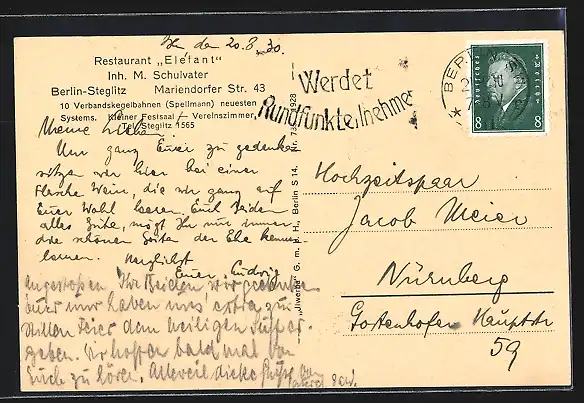 Bln den 20.8.30.
Restaurant „Elefant"
Inh. M. Schulvater
Berlin-Steglitz Mariendorfer Str. 43
10 Verbandskegelbahnen (Spellmann) neuesten
Systems. Kleiner Festsaal — Vereinszimmer,
Tel. Steglitz 1565
Meine Lieben!
Um ganz Euer zu gedenken
sitzen wir hier bei einer
Flasche Wein, die wir ganz auf
Euer Wohl leeren. Euch beiden
alles Gute, mögt Ihr nur immer
die schönen Seiten der Ehe kennen
lernen. Herzlichst
Euer Ludwig
angestoßen. Ihr Beiden
wir haben uns extra zur
stillen Feier dem heiligen Suff er-
geben. Wir hoffen bald mal von
Euch zu hören. Allerweil dicke
„Jlwerba" G. m. b. H., Berlin S 14. Nr. 1928
Werdet
Rundfunkteilnehmer
BERLIN
Deutsches Reich
8 8
Hochzeitspaar
Jacob Meier
Nürnberg
Gostenhofer Hauptstr
59